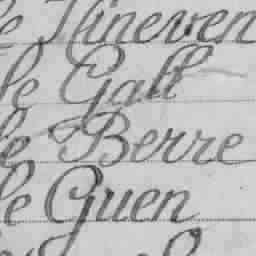 le Hineven
le Gall
le Berre
le Guen